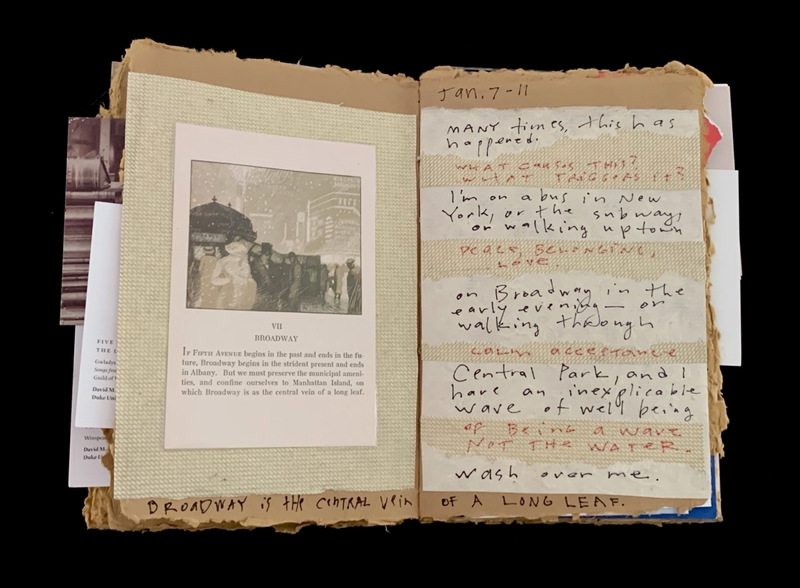 FIVE
THE
Gwladys
Songs from
Guild of
David M.
Duke Un
Winspear
David M.
Duke Un
VII
BROADWAY
If Fifth Avenue begins in the past and ends in the fu-
ture, Broadway begins in the strident present and ends
in Albany. But we must preserve the municipal ameni-
ties, and confine ourselves to Manhattan Island, on
which Broadway is as the central vein of a long leaf.
Jan. 7-11
MANY times, this has
happened.
WHAT CAUSES THIS?
WHAT TRIGGERS IT?
I'm on a bus in New
York, or the subway,
or walking uptown
PEACE, BELONGING,
LOVE
on Broadway in the
early evening — or
walking through
CALM acceptance
Central Park, and I
have an inexplicable
wave of well being
OF BEING A WAVE
NOT THE WATER.
wash over me.
BROADWAY is the CENTRAL Vein OF A LONG LEAF.